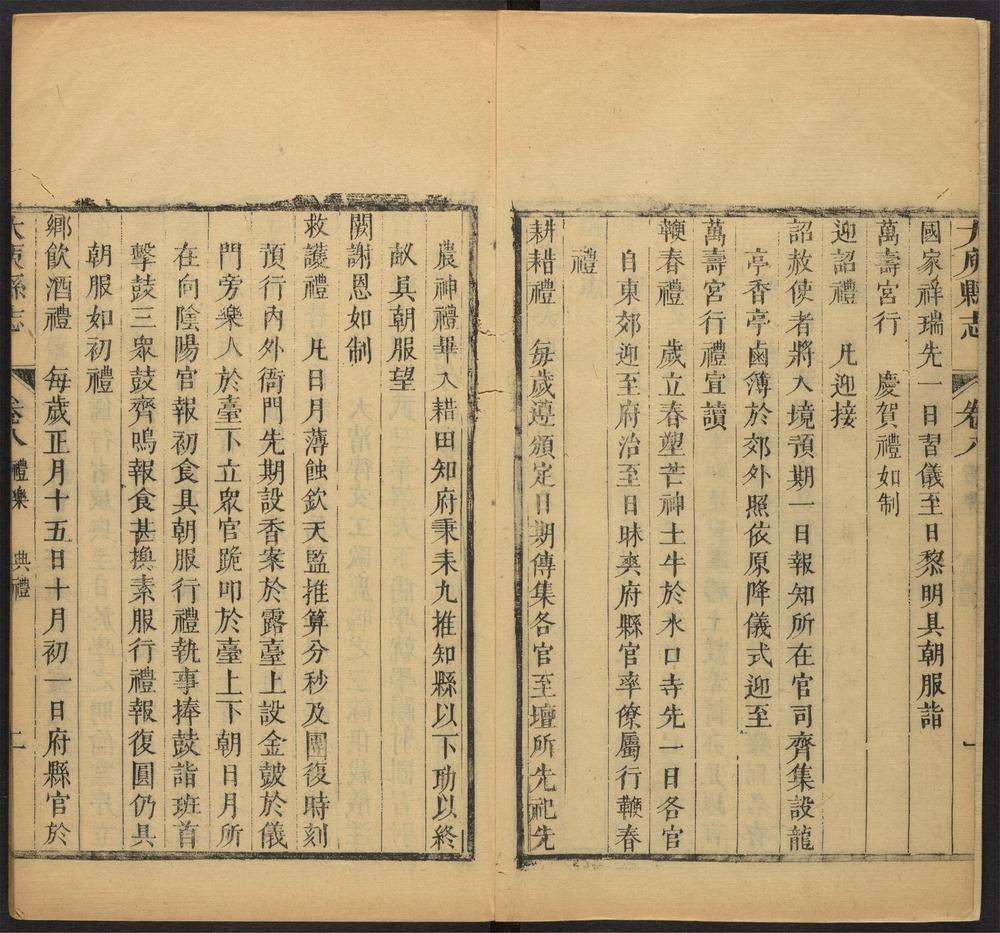 大庾縣志 卷八 一
國家祥瑞先一日習儀至日黎明具朝服詣
萬壽宮行 慶賀禮如制
迎詔禮 凡迎接
詔赦使者將入境預期一日報知所在官司齊集設龍
亭香亭鹵簿於郊外照依原降儀式迎至
萬壽宮行禮宣讀
鞭春禮 歲立春塑芒神土牛於水口寺先一日各官
自東郊迎至府治至日昧爽府縣官率僚屬行鞭春
禮
耕耤禮 每歲遵頒定日期傳集各官至壇所先祀先
農神禮畢入耤田知府秉耒九推知縣以下助以終
畝具朝服望
闕謝恩如制
救護禮 凡日月薄蝕欽天監推算分秒及團復時刻
預行內外衙門先期設香案於露臺上設金鼓於儀
門旁樂人於臺下立眾官跪叩於臺上下朝日月所
在向陰陽官報初食具朝服行禮執事捧鼓詣班首
擊鼓三眾鼓齊鳴報食甚換素服行禮報復圓仍具
朝服如初禮
鄉飲酒禮 每歲正月十五日十月初一日府縣官於
大庾縣志 卷八 禮樂 典禮 二